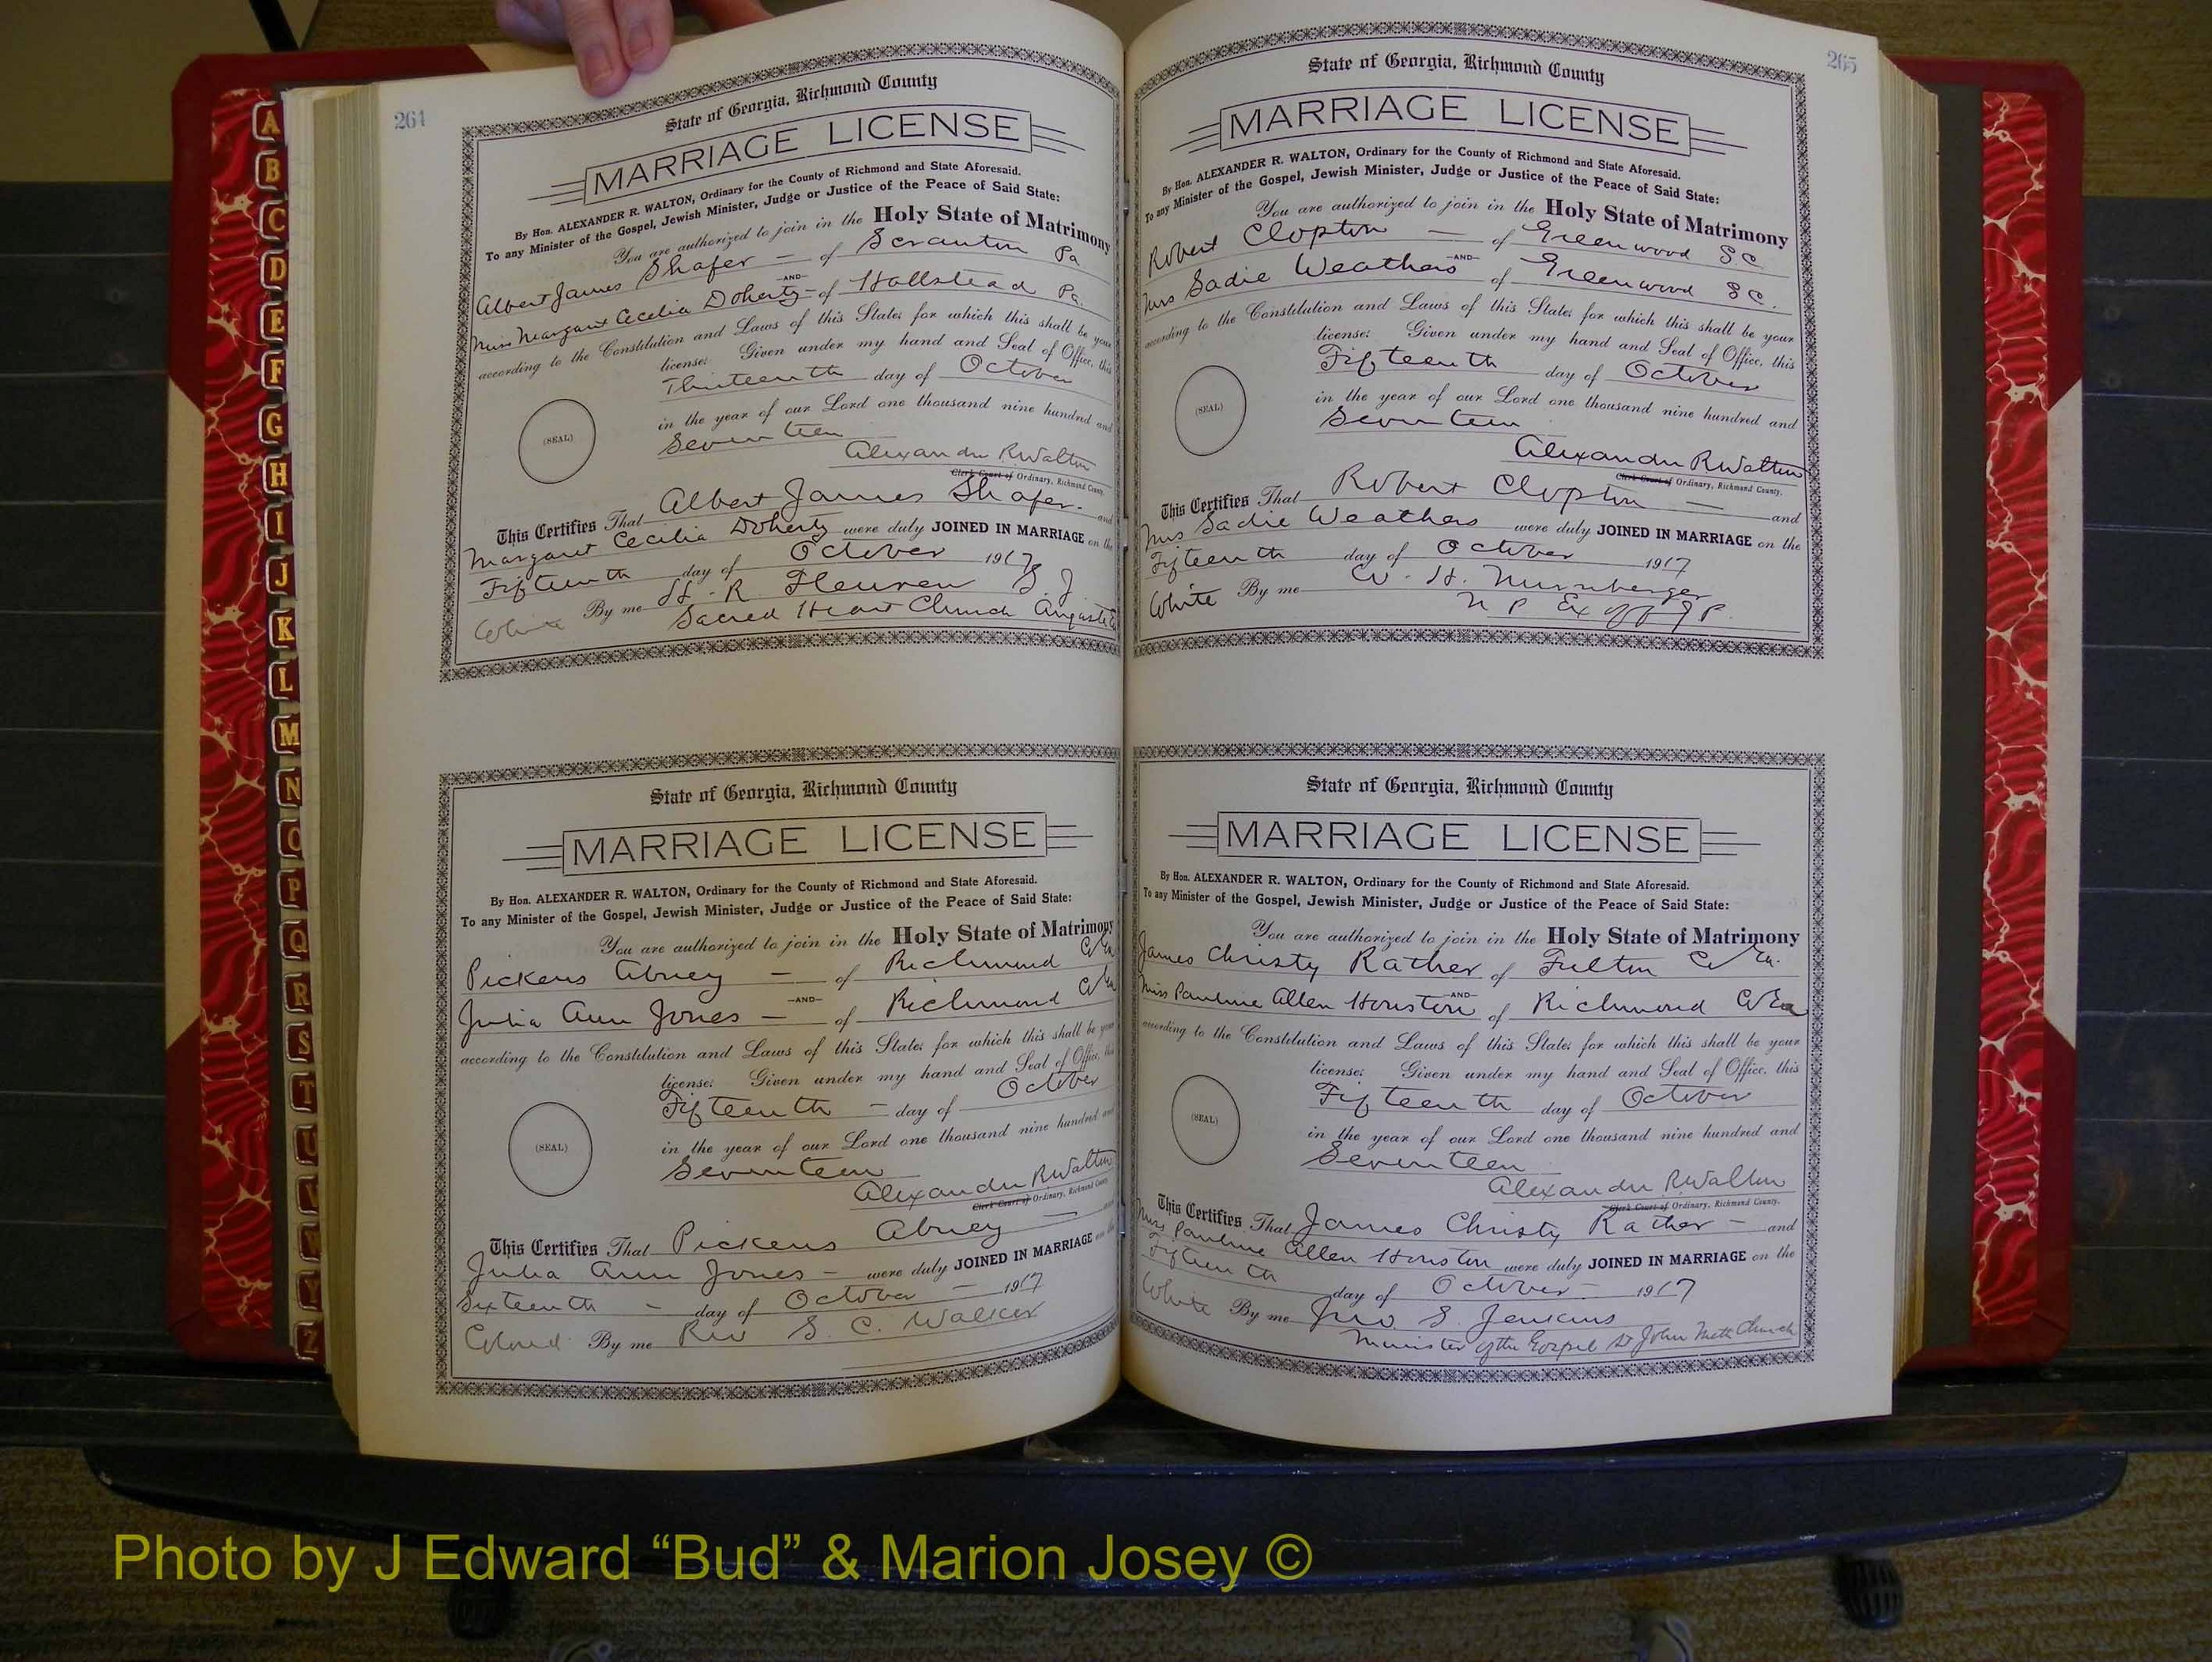 A
B
C
D
E
F
G
H
I
J
K
L
M
N
O
P
Q
R
S
T
U
V
W
Y
Z
264
State of Georgia, Richmond County
MARRIAGE LICENSE
By Hon. ALEXANDER R. WALTON, Ordinary for the County of Richmond and State Aforesaid.
To any Minister of the Gospel, Jewish Minister, Judge or Justice of the Peace of Said State:
You are authorized to join in the Holy State of Matrimony
Albert James Shafer - of Scranton Pa
-AND-
Miss Margaret Cecilia Doherty - of Hallstead Pa.
according to the Constitution and Laws of this State; for which this shall be your
license: Given under my hand and Seal of Office, this
Thirteenth day of October
in the year of our Lord one thousand nine hundred and
(SEAL)
Seventeen
Alexander R Walton
Clerk Court of Ordinary, Richmond County.
This Certifies That Albert James Shafer - and
Margaret Cecilia Doherty were duly JOINED IN MARRIAGE on the
Fifteenth day of October 1917
White By me H. R. Fleuren S J
Sacred Heart Church Augusta Ga
State of Georgia, Richmond County
MARRIAGE LICENSE
By Hon. ALEXANDER R. WALTON, Ordinary for the County of Richmond and State Aforesaid.
To any Minister of the Gospel, Jewish Minister, Judge or Justice of the Peace of Said State:
You are authorized to join in the Holy State of Matrimony
Pickens Abney - of Richmond Co Ga
-AND-
Julia Ann Jones - of Richmond Co Ga
according to the Constitution and Laws of this State; for which this shall be your
license: Given under my hand and Seal of Office, this
Fifteenth - day of October
in the year of our Lord one thousand nine hundred and
(SEAL)
Seventeen
Alexander R Walton
Clerk Court of Ordinary, Richmond County
This Certifies That Pickens Abney - and
Julia Ann Jones - were duly JOINED IN MARRIAGE on the
Sixteenth - day of October - 1917
Colored By me Rev S. C. Walker
265
State of Georgia, Richmond County
MARRIAGE LICENSE
By Hon. ALEXANDER R. WALTON, Ordinary for the County of Richmond and State Aforesaid.
To any Minister of the Gospel, Jewish Minister, Judge or Justice of the Peace of Said State:
You are authorized to join in the Holy State of Matrimony
Robert Clopton - of Greenwood S C
-AND-
Mrs Sadie Weathers of Greenwood S C.
according to the Constitution and Laws of this State; for which this shall be your
license: Given under my hand and Seal of Office, this
Fifteenth day of October
in the year of our Lord one thousand nine hundred and
(SEAL)
Seventeen
Alexander R Walton
Clerk Court of Ordinary, Richmond County.
This Certifies That Robert Clopton - and
Mrs Sadie Weathers were duly JOINED IN MARRIAGE on the
Fifteenth day of October 1917
White By me W. H. Nurnberger
N P Ex off J P.
State of Georgia, Richmond County
MARRIAGE LICENSE
By Hon. ALEXANDER R. WALTON, Ordinary for the County of Richmond and State Aforesaid.
To any Minister of the Gospel, Jewish Minister, Judge or Justice of the Peace of Said State:
You are authorized to join in the Holy State of Matrimony
James Christy Rather of Fulton Co Ga.
-AND-
Miss Pauline Allen Houston of Richmond Co Ga
according to the Constitution and Laws of this State; for which this shall be your
license: Given under my hand and Seal of Office, this
Fifteenth day of October
in the year of our Lord one thousand nine hundred and
(SEAL)
Seventeen
Alexander R Walton
Clerk Court of Ordinary, Richmond County.
This Certifies That James Christy Rather - and
Miss Pauline Allen Houston were duly JOINED IN MARRIAGE on the
Fifteenth day of October - 1917
White By me Jno S. Jenkins
Minister of the Gospel St John Meth Church
Photo by J Edward “Bud” & Marion Josey ©